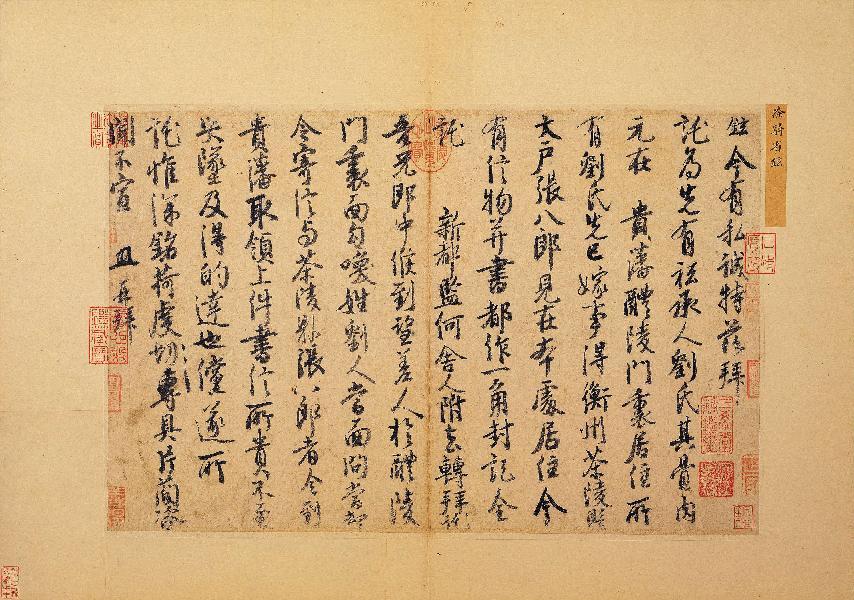 鉉今有私誠特茲拜
託為先有祗承人劉氏其骨肉
元在 貴藩醴陵門裏居住所
有劉氏先已嫁事得衡州茶陵縣
大戶張八郎見在本處居住今
有信物并書都作一角封記全
託 新都監何舍人附去轉拜託
吾兄郎中候到望差人於醴陵
門裏面勾喚姓劉人當面問當却
令寄信與茶陵縣張八郎者令到
貴藩取領上件書信所貴不至
失墜及得的達也儻遂所
託惟深銘荷虔切專具片簡咨
聞不宣 鉉再拜